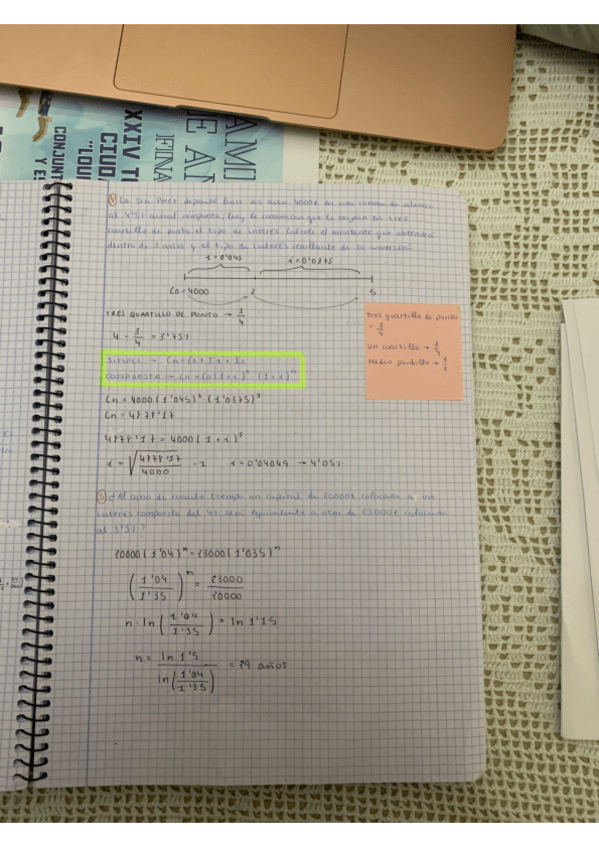 AMI
E AI
FINA
XXIV T
CIUD
"LOUI
CONJUNT
Y ES
4) La Sra. Pérez depositó hace dos años 4000€ en una cuenta de ahorro
al 4'5% anual compuesto, hoy le comunican que le bajan en tres
cuartillo de punto el tipo de interés. Calcula el montante que obtendrá
dentro de 3 años y el tipo de interés resultante de su inversión.
i = 0'045 i = 0'0375
Co = 4000 2 5
TRES QUARTILLO DE PUNTO → 3/4
4 - 3/4 = 3'75%
SIMPLE → Cn = Co + I1 + I2
COMPUESTA → Cn = Co (1+i)^n (1+i)^n
Cn = 4000 (1'045)² · (1'0375)³
Cn = 4878'17
4878'17 = 4000 (1+i)^5
i = √4878'17/4000 - 1 i = 0'04049 → 4'05%
tres quartillo de punto
= 3/4
un cuartillo → 1/4
medio puntillo → 1/2
5) ¿Al cabo de cuanto tiempo un capital de 20000€ colocado a un
interés compuesto del 4% será equivalente a otro de 23000€ colocado
al 3'5%?
20000 (1'04)^n = 23000 (1'035)^n
(1'04/1'35)^n = 23000/20000
n · ln (1'04/1'35) = ln 1'15
n = ln 1'5 / ln (1'04/1'35) = 29 años